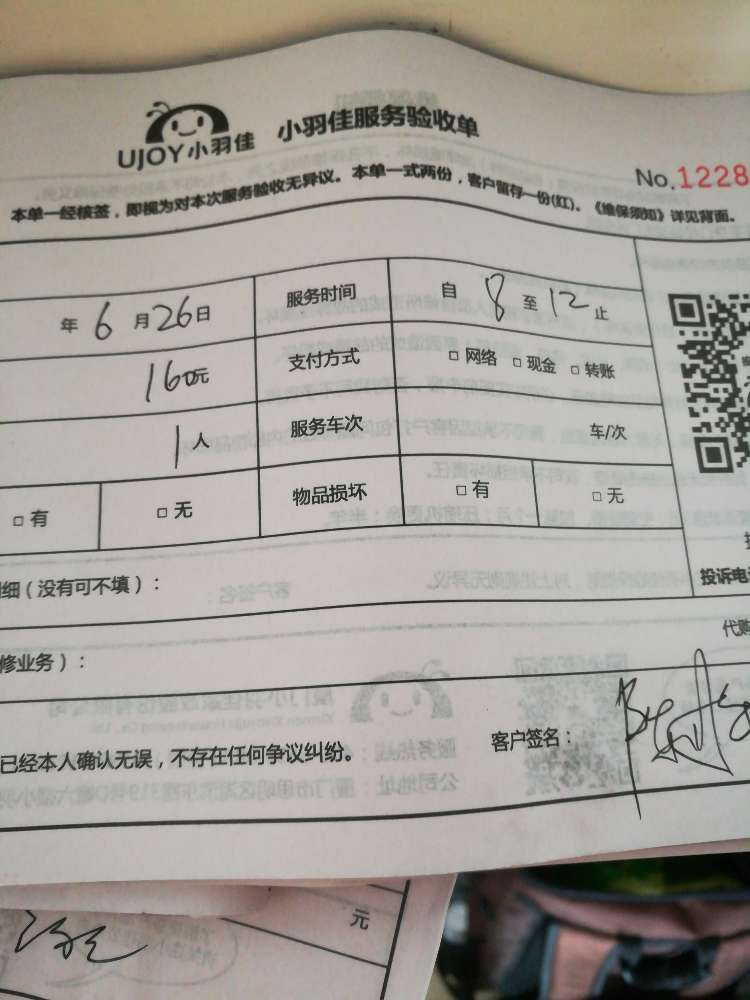 UJOY小羽佳 小羽佳服务验收单
No.1228
本单一经核签，即视为对本次服务验收无异议。本单一式两份，客户留存一份(红)。《维保须知》详见背面。
年 6 月 26 日 服务时间 自 8 至 12 止
160元 支付方式 □ 网络 □ 现金 □ 转账
1 人 服务车次 车/次
□ 有 □ 无 物品损坏 □ 有 □ 无
细（没有可不填）：
投诉电
代购
修业务）：
已经本人确认无误，不存在任何争议纠纷。 客户签名：
元